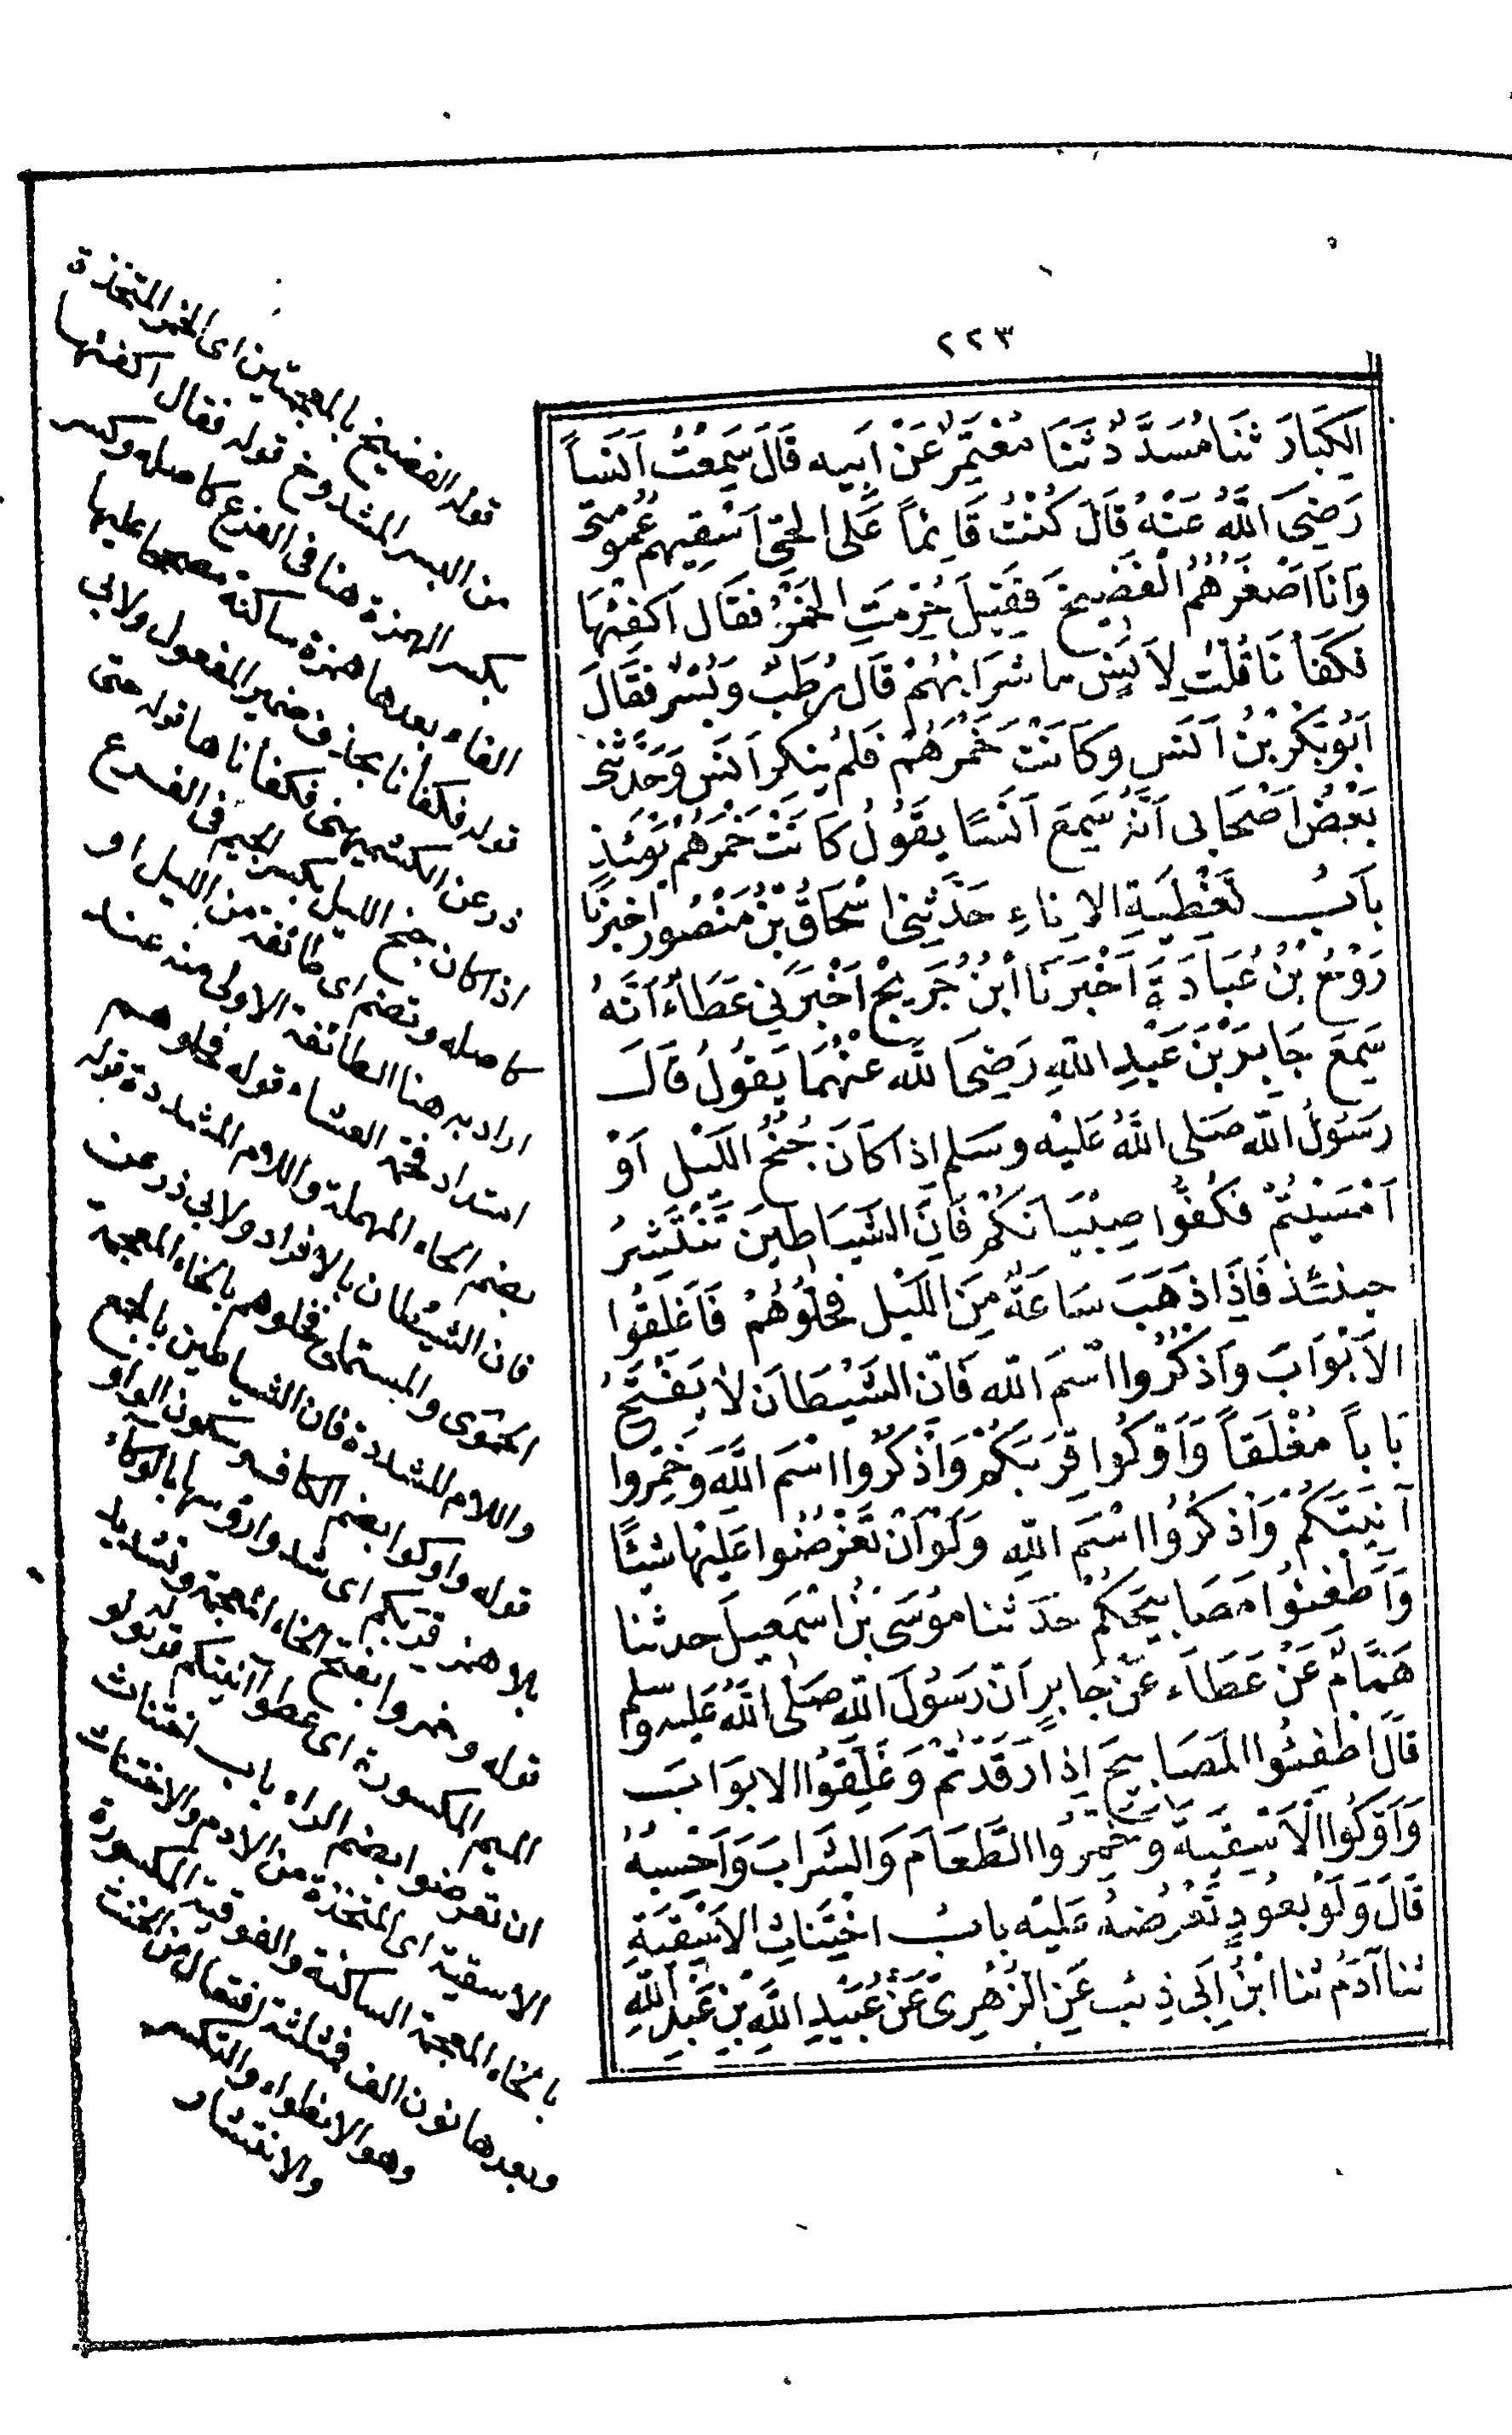 ٢٢٣
الكِبَارَ ثَنَا مُسَدَّدٌ ثَنَا مُعْتَمِرٌ عَنْ اَبِيهِ قَالَ سَمِعْتُ اَنَساً
رَضِىَ اللّٰهُ عَنْهُ قَالَ كُنْتُ قَائِماً عَلَى الحَىِّ اَسْقِيهِم عُمُومَتِى
وَاَنَا اَصْغَرُهُمُ الْفَضِيخَ فَقِيلَ حُرِّمَتِ الخَمْرُ فَقَال اَكفِئْهَا
فَكَفَأْنَا قُلْتُ لِاَنَسٍ ما شَرَابُهُمْ قَالَ رُطَبٌ وَبُسْرٌ فَقَالَ
اَبُو بَكْرِ بْنُ اَنَسٍ وَكَانَتْ خَمْرَهُمْ فَلَمْ يُنكِر اَنَس وَحَدَّثَنِى
بَعْضُ اَصْحَابِى اَنَّهُ سَمِعَ اَنَسًا يقُولُ كَانَتْ خَمْرَهُمْ يَوْمَئِذٍ
بَابُ تَغْطِيَةِ الانَاءِ حَدَّثَنِى اسْحَاقُ بْنُ مَنْصُور اَخبرَنَا
رَوْحُ بْنُ عُبَادَةَ اَخْبَرَنَا ابْنُ جُرَيجٍ اَخْبَرَنِي عَطَاءٌ اَنَّهُ
سَمِعَ جَابِرَ بْنَ عَبْدِ اللّٰهِ رَضِىَ اللّٰه عَنْهُمَا يَقُولُ قَالَ
رَسُولُ اللّٰه صَلى اللّٰهُ عَلَيْه وسَلم اِذا كَانَ جُنْحُ اللَيْل اَوْ
اَمْسَيْتُمْ فَكُفُّوا صِبْيَانَكُمْ فَاِنَّ الشَيَاطِينَ تَنْتَشِرُ
حينَئذ فَاِذَا ذَهَبَ سَاعَةٌ مِنَ اللَيْل فحُلُّوهُمْ فَاَغلِقُوا
الاَبْوَابَ وَاذْكُرُوا اسْمَ اللّٰه فَاِنّ الشَيْطَانَ لَا يَفْتَحُ
بَاباً مُغْلَقاً وَاَوْكُوا قِرَبَكُمْ وَاذْكُرُوا اسْمَ اللّٰهِ وَخَمِّروا
آنِيَتَكُمْ وَاذْكُرُوا اسْمَ اللّٰهِ وَلَوْ اَنْ تَعْرُضُوا عَلَيْهَا شيْئًا
وَاَطْفِئُوا مَصَابِيحَكُمْ حَدَّثَنا مُوسَى بْنُ اسْمَعِيلَ حدثنا
هَمَّامٌ عَنْ عَطَاء عَنْ جَابِرٍ اَنّ رَسُولَ اللّٰهِ صَلَى اللّٰهُ عَليه وسلم
قالَ اَطْفِئُوا المَصَابِيحَ اِذَا رَقَدْتُمْ وَغَلِّقُوا الابوَابَ
وَاَوْكُوا الْاَسْقِيَةَ وَخَمِّرُوا الطَّعَامَ وَالشَرابَ وَاَحْسِبُهُ
قَالَ وَلَوْ بعُودٍ تَعْرُضهُ عَليْه بابُ اخْتِنَاثِ الاَسْقِيَةِ
ثنا آدَمُ ثنا ابْنُ اَبِى ذِئب عَنِ الزُّهرِىّ عَنْ عُبَيْدِ اللّٰهِ بْنِ عَبْدِ اللّٰهِ
قوله الفضيخ بالمعجمتين اى الخمر المتخذة
من البسر المشدوخ قوله فقال اكفئها
بكسر الهمزة هنا فى الفرع كاصله وكسر
الفاء بعدها همزة ساكنة مصححا عليها
قوله فكفأنا بحذف ضمير المفعول ولابي
ذر عن الكشميهنى فكفأناها قوله حتى
اذا كان جنح الليل بكسر الجيم فى الفرع
كاصله وتضم اى طائفة من الليل او
اراد به هنا الطائفة الاولى منه عند
استداد فحمة العشاء قوله فحلوهم
بضم الحاء المهملة واللام المشددة قوله
فان الشيطان بالافراد ولابي ذر عن
الحموى والمستملى فخلوهم بالخاء المعجمة
واللام المشددة فان الشياطين بالجمع
قوله واوكوا بضم الكاف وسكون الواو
بلا همز قربكم اى شدوا رؤسها بالوكاء
قوله وخمروا بفتح الخاء المعجمة وتشديد
الميم المكسورة اى غطوا آنيتكم قوله ولو
ان تعرضوا بضم الراء باب اختناث
الاسقية اى المتخذة من الادم والاختناث
بالخاء المعجمة الساكنة والفوقية المكسورة
وبعدها نون الف فمثلثة افتعال من الخنث
وهو الانطواء والتكسر
والانثناء